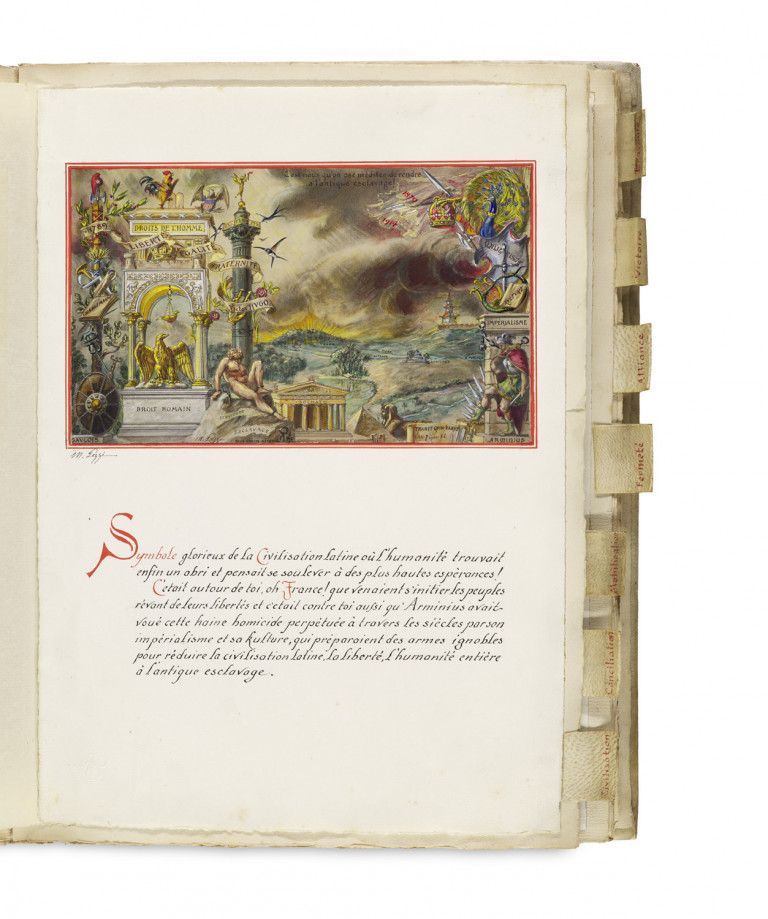 C'est nous qu'on ose méditer de rendre
à l'antique esclavage!
1870
1914
89
DROITS DE L'HOMME
LIBERTÉ
EGALITÉ
FRATERNITÉ
HUGO
IMPÉRIALISME
DROIT ROMAIN
GAULOIS
ESCLAVAGE
ARMINIUS
M. Lozzi
Symbole glorieux de la Civilisation Latine où l'humanité trouvait
enfin un abri et pensait se soulever à des plus hautes espérances!
C'etait autour de toi, oh France! que venaient s'initier les peuples
rêvant de leurs libertés et c'etait contre toi aussi qu'Arminius avait-
voué cette haine homicide perpétuée à travers les siècles par son
impérialisme et sa kulture, qui préparaient des armes ignobles
pour réduire la civilisation Latine, la liberté, l'humanité entière
à l'antique esclavage.
Victoire
Alliance
Fermeté
Mobilisation
Conciliation
Civilisation